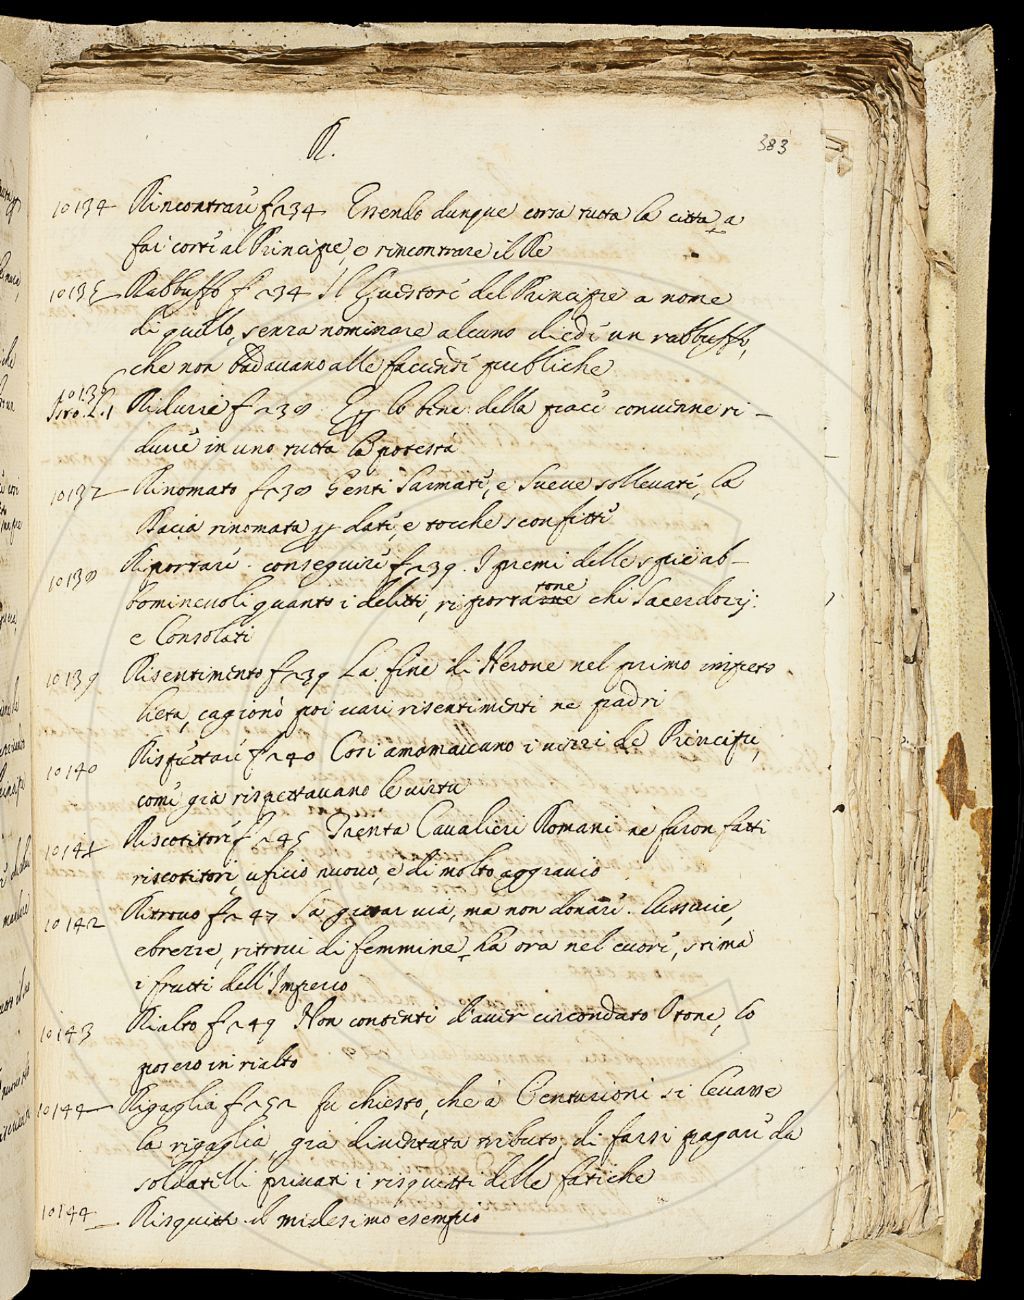 R.
383
10134 Rincontrare f. 234 Essendo dunque corsa tutta la citta a
far corte al Principe, e rincontrare il Re
10135 Rabbuffo f. 234 Il Questore del Principe a nome
di quello, senza nominare alcuno diede un rabbuffo,
che non badavano alle facende publiche
10136
Isto. L. 1 Ridurre f. 238 E lo bene della pace convenne ri-
durre in uno tutta la potestà
10137 Rinomato f. 238 Genti Sarmate, e Sueve sollevate, la
Dacia rinomata date, e tocche sconfitte
10138 Riportare. conseguire f. 239. I premi delle spie ab-
bominevoli quanto i delitti, riportatone chi Sacerdozij:
e Consolati
10139 Risentimento f. 239 La fine di Nerone nel primo impeto
lieta, cagionò poi vari risentimenti ne padri
10140 Rispettare f. 240 Cosi amomavano i vizzi de Principi,
come gia rispettavano le virtu
10141 Riscotitore f. 245 Trenta Cavalieri Romani ne furon fatti
riscotitori, uficio nuovo, e di molto aggravio
10142 Ritrovo f. 247 Sa gittar via, ma non donare. Lussurie,
ebrezze, ritrovi di femmine, ha ora nel cuore, stima
i frutti dell'Imperio
10143 Rialto f. 249 Non contenti d'aver circondato Otone, lo
posero in rialto
10144 Rigaglia f. 252 fu chiesto, che a Centurioni si levasse
la rigaglia, gia diventata tributo, di farsi pagare da
soldatelli privati i risquitti delle fatiche
10144 Risquitti il midesimo esempio